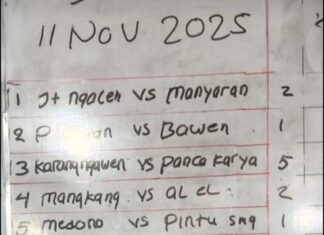 11 NOV 2025
1 Jt ngaceh vs manyaran 2
2 vs Bawen 1
3 Karangngawen vs panca karya 5
4 mangkang vs aL eL 2
5 medono vs Pintu sng 1